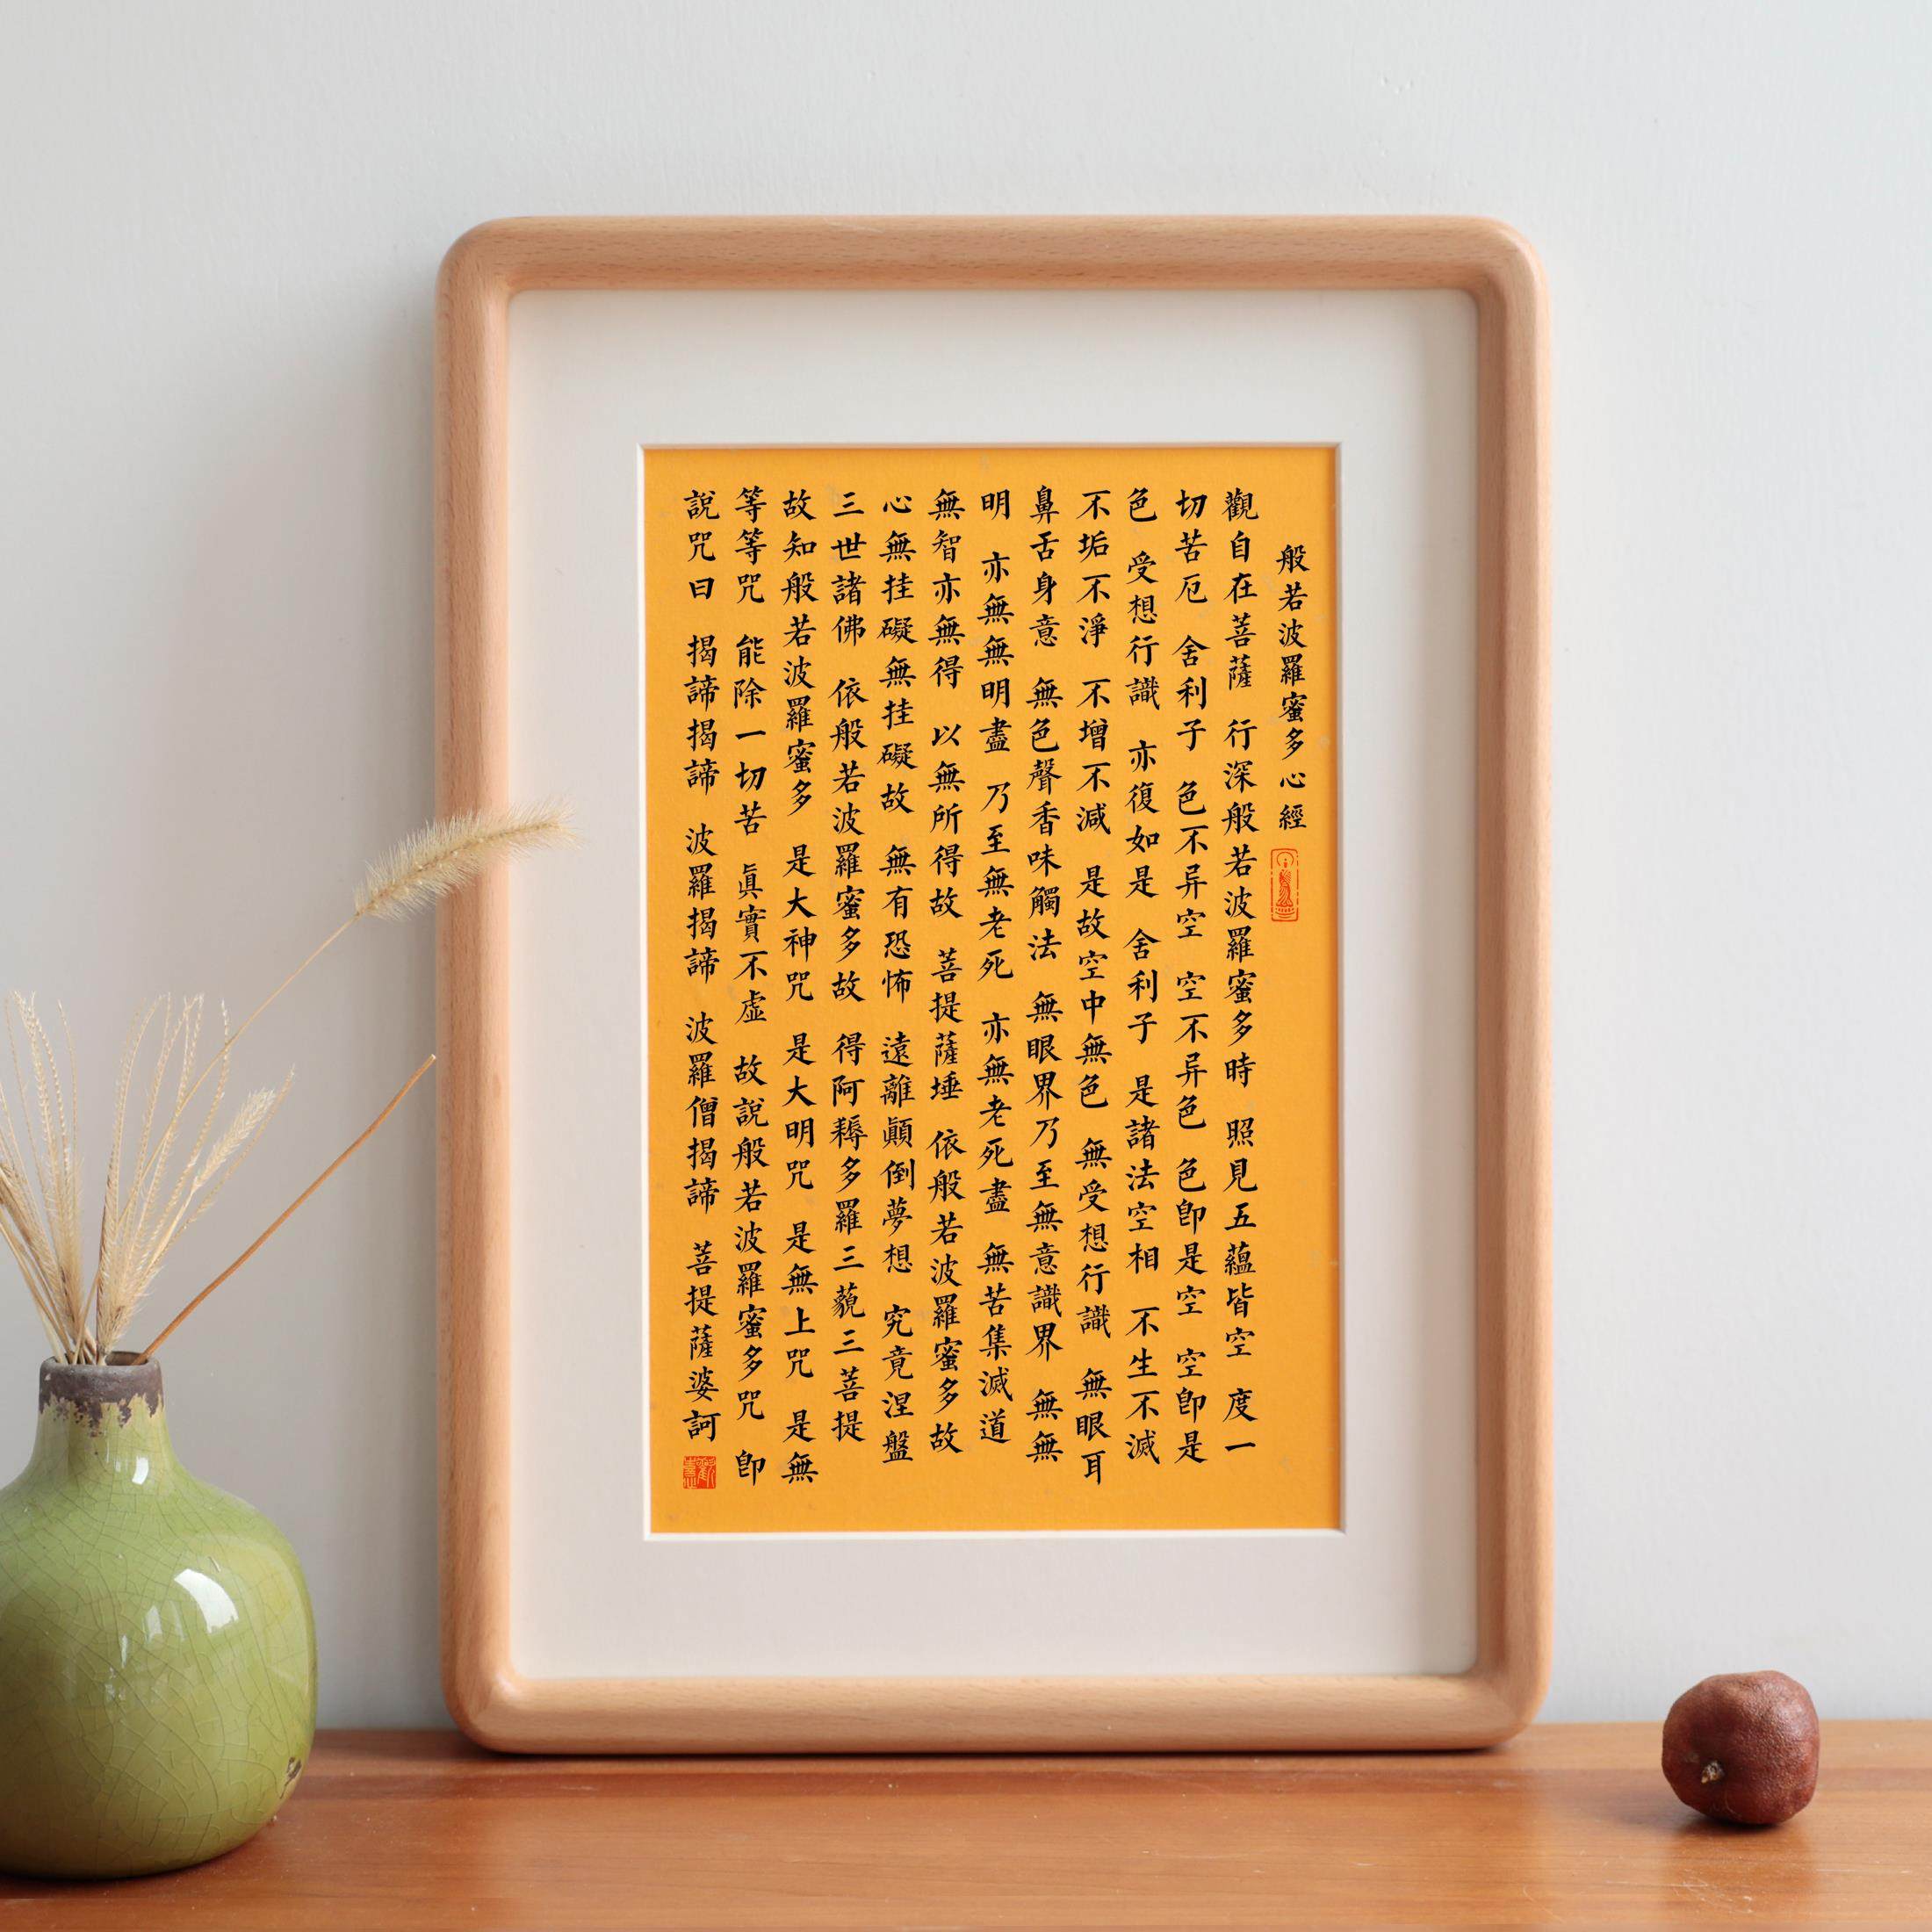 般若波羅蜜多心經
觀自在菩薩 行深般若波羅蜜多時 照見五蘊皆空 度一
切苦厄 舍利子 色不异空 空不异色 色卽是空 空卽是
色 受想行識 亦復如是 舍利子 是諸法空相 不生不滅
不垢不淨 不增不減 是故空中無色 無受想行識 無眼耳
鼻舌身意 無色聲香味觸法 無眼界乃至無意識界 無無
明 亦無無明盡 乃至無老死 亦無老死盡 無苦集滅道
無智亦無得 以無所得故 菩提薩埵 依般若波羅蜜多故
心無挂礙無挂礙故 無有恐怖 遠離顚倒夢想 究竟涅盤
三世諸佛 依般若波羅蜜多故 得阿耨多羅三藐三菩提
故知般若波羅蜜多 是大神咒 是大明咒 是無上咒 是無
等等咒 能除一切苦 眞實不虛 故說般若波羅蜜多咒 卽
說咒曰 揭諦揭諦 波羅揭諦 波羅僧揭諦 菩提薩婆訶